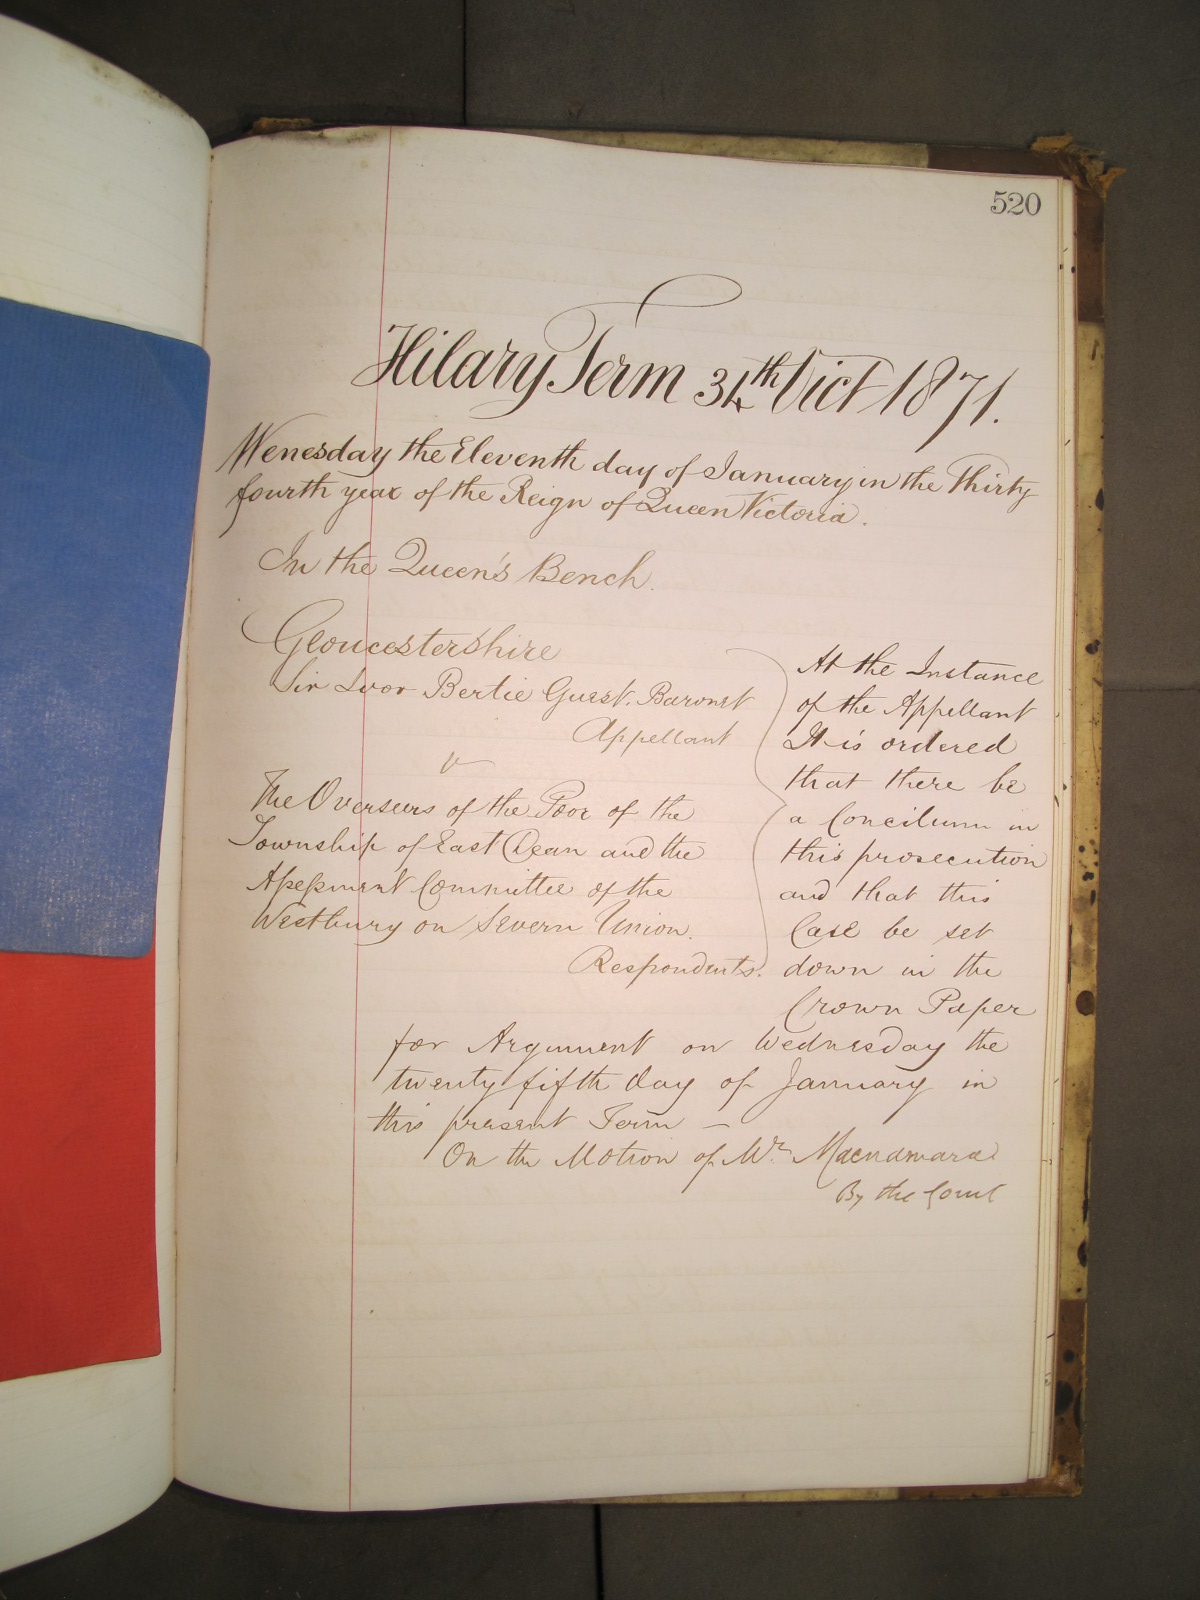 520
Hilary Term 34th Vict 1871.
Wenesday the Eleventh day of January in the Thirty
fourth year of the Reign of Queen Victoria.
In the Queen's Bench.
Gloucestershire
Sir Ivor Bertie Guest, Baronet
Appellant
v
The Overseers of the Poor of the
Township of East Dean and the
Assessment Committee of the
Westbury on Severn Union.
Respondents.
At the Instance
of the Appellant
It is ordered
that there be
a Concilium in
this prosecution
and that this
Case be set
down in the
Crown Paper
for Argument on Wednesday the
twenty fifth day of January in
this present Term —
On the Motion of Mr. Macnamara
By the Court